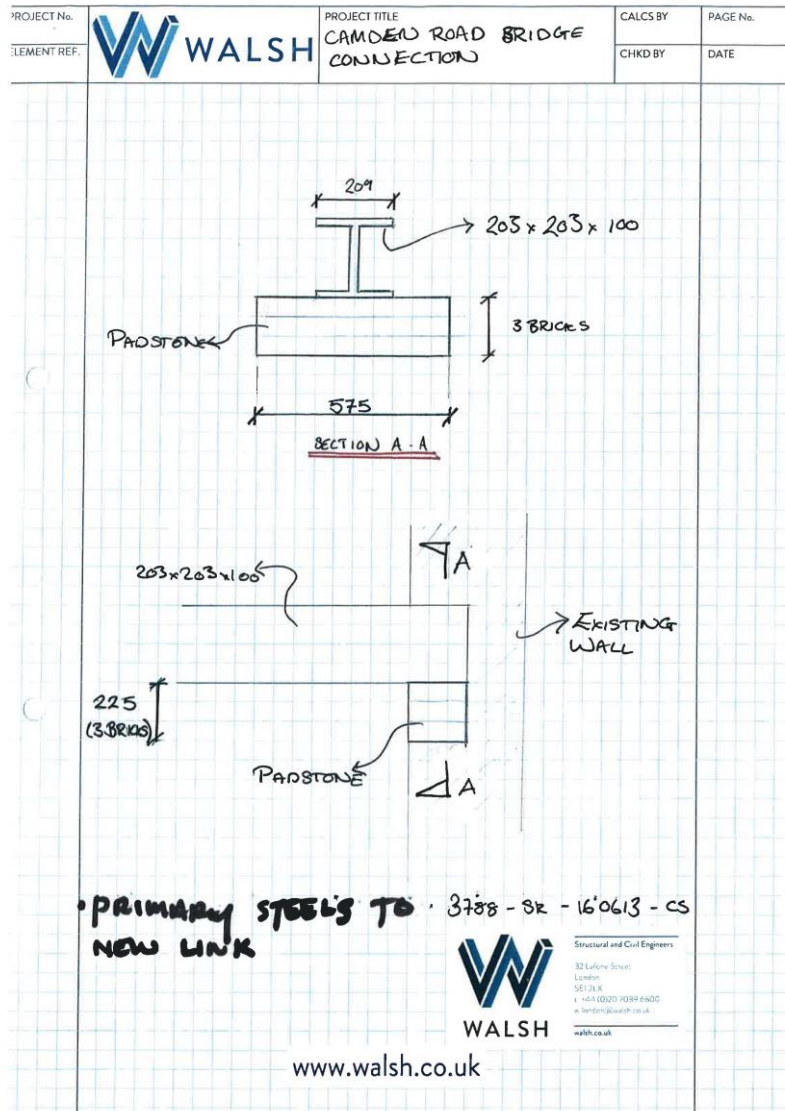 PROJECT No.
ELEMENT REF.
WALSH
PROJECT TITLE
CAMDEN ROAD BRIDGE
CONNECTION
CALCS BY
CHKD BY
PAGE No.
DATE
209
203 x 203 x 100
PADSTONE
3 BRICKS
575
SECTION A-A
A
203x203x100
EXISTING
WALL
225
(3 BRICKS)
PADSTONE
A
• PRIMARY STEELS TO
NEW LINK
3788 - SK - 160613 - CS
WALSH
Structural and Civil Engineers
32 Lafone Street
London
SE1 2LX
t +44 (0)20 7089 6800
e london@walsh.co.uk
walsh.co.uk
www.walsh.co.uk